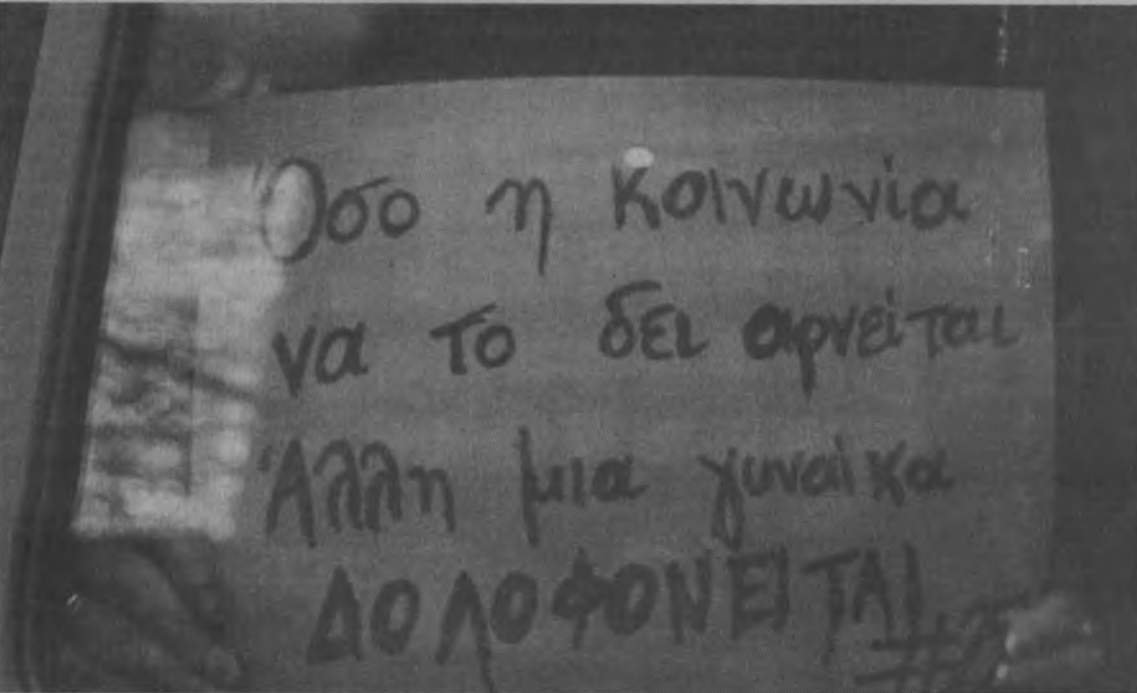 Όσο η κοινωνία
να το δει αρνείται
Άλλη μια γυναίκα
ΔΟΛΟΦΟΝΕΙΤΑΙ